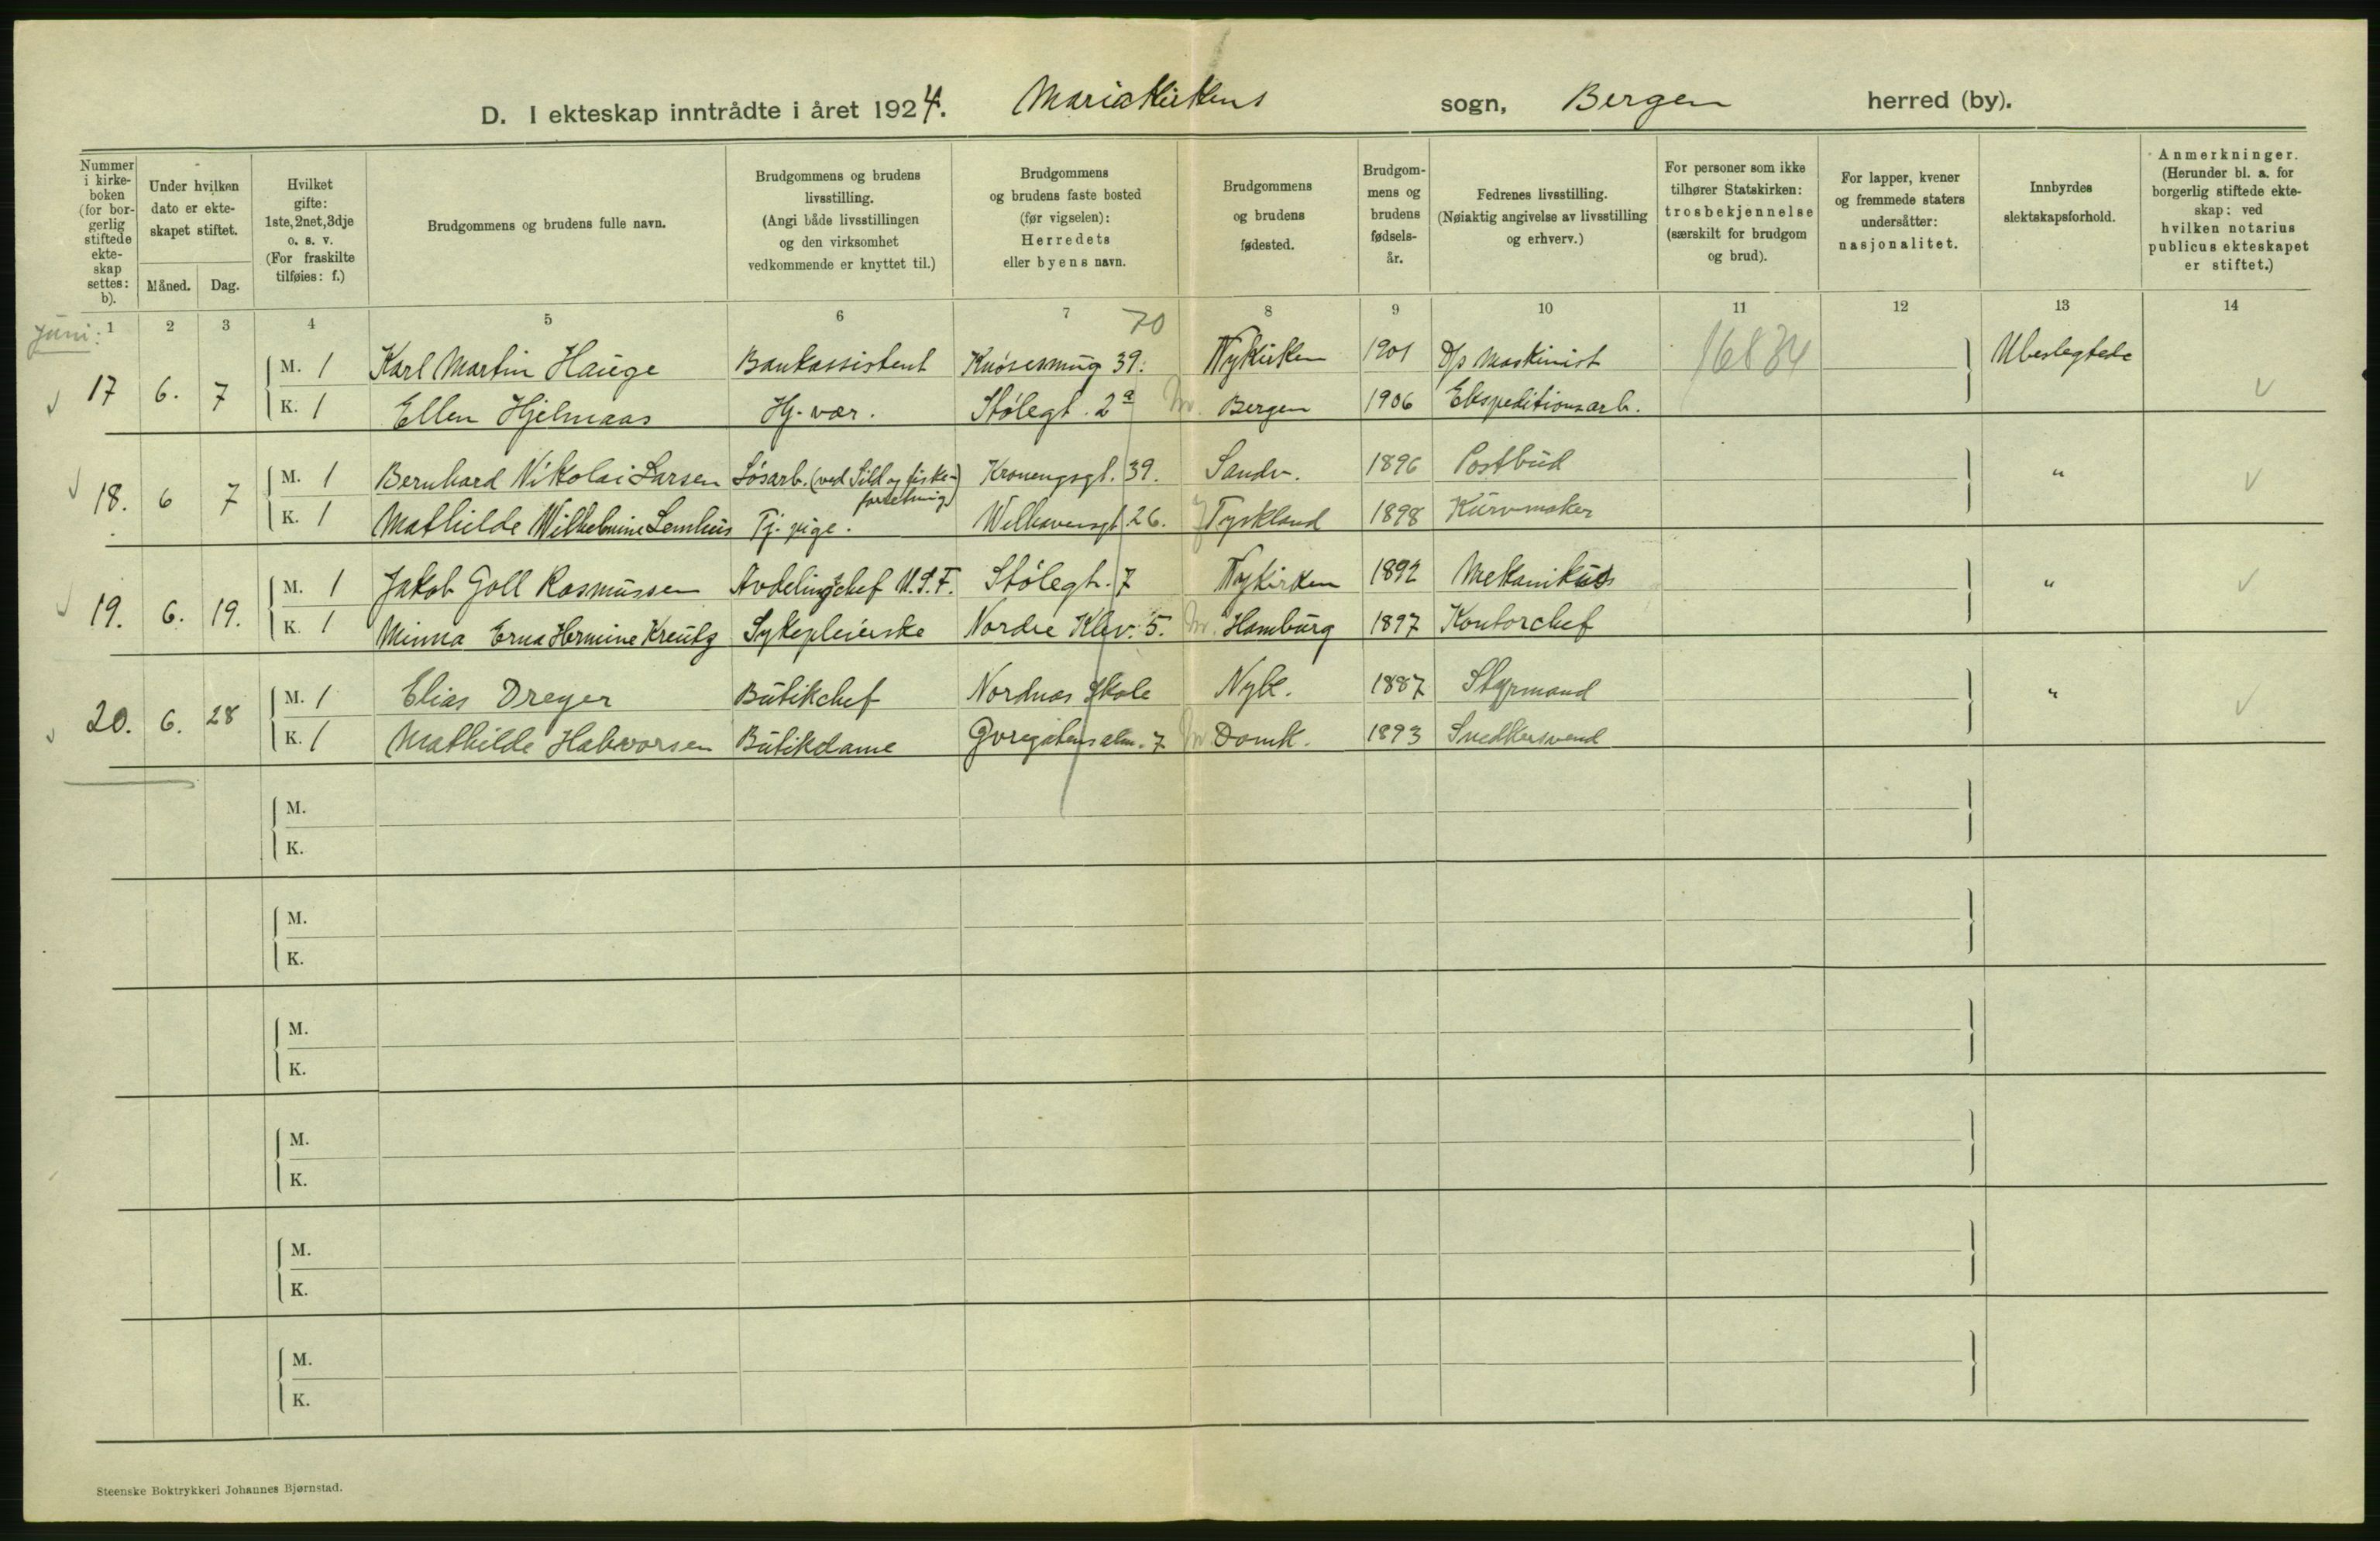 D. I ekteskap inntrådte i året 1924. Mariakirkens sogn, Bergen herred (by).
Nummer i kirke-boken (for bor-gerlig stiftede ekte-skap settes: b).
Under hvilken dato er ekte-skapet stiftet.
Måned. Dag.
Hvilket gifte: 1ste, 2net, 3dje o. s. v. (For fraskilte tilføies: f.)
Brudgommens og brudens fulle navn.
Brudgommens og brudens livsstilling. (Angi både livsstillingen og den virksomhet vedkommende er knyttet til.)
Brudgommens og brudens faste bosted (før vigselen): Herredets eller byens navn.
Brudgommens og brudens fødested.
Brudgom-mens og brudens fødsels-år.
Fedrenes livsstilling. (Nøiaktig angivelse av livsstilling og erhverv.)
For personer som ikke tilhører Statskirken: trosbekjennelse (særskilt for brudgom og brud).
For lapper, kvener og fremmede staters undersåtter: nasjonalitet.
Innbyrdes slektskapsforhold.
Anmerkninger. (Herunder bl. a. for borgerlig stiftede ekte-skap: ved hvilken notarius publicus ekteskapet er stiftet.)
1 2 3 4 5 6 7 8 9 10 11 12 13 14
Juni: 70 16834
17 6. 7 M. 1 Karl Martin Hauge Bankassistent Knøsesmug 39. Nykirken 1901 D/s Maskinist Ubeslegtede
K. 1 Ellen Hjelmaas Hj. vær. Stølegt. 2a Bergen 1906 Ekspeditionsarb.
18. 6 7 M. 1 Bernhard Nikolai Larsen Løsarb. (ved Sild og fiske-forretning) Kronengsgt. 39. Sandv. 1896 Postbud "
K. 1 Mathilde Wilhelmine Lemhuis Tj. pige. Welhavensgt 26. Tyskland 1898 Kurvmaker
19. 6. 19. M. 1 Jakob Goll Rasmussen Avdelingschef U.S.F. Stølegt. 7 Nykirken 1892 Mekanikus "
K. 1 Minna Erna Hermine Kreutz Sykepleierske Nordre Klev. 5. Hamburg 1897 Kontorchef
20. 6. 28 M. 1 Elias Dreyer Butikchef Nordnæs Skole Nyk. 1887 Styrmand "
K. 1 Mathilde Halvorsen Butikdame Øvregatens alm. 7 Domk. 1893 Snedkersvend
M.
K.
M.
K.
M.
K.
M.
K.
M.
K.
M.
K.
Steenske Boktrykkeri Johannes Bjørnstad.